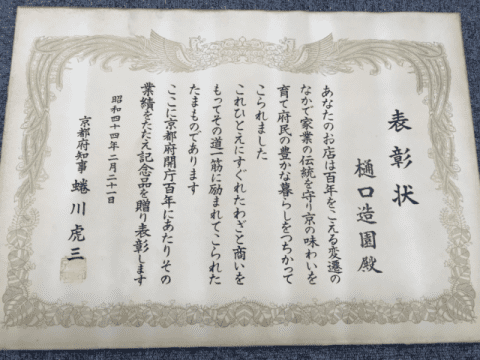 表彰状
樋口造園殿
あなたのお店は百年をこえる変遷の
なかで家業の伝統を守り京の味わいを
育て府民の豊かな暮らしをつちかって
こられました
これひとえにすぐれたわざと商いを
もってその道一筋に励まれてこられた
たまものであります
ここに京都府開庁百年にあたりその
業績をたたえ記念品を贈り表彰します
昭和四十四年二月二十一日
京都府知事 蜷川虎三